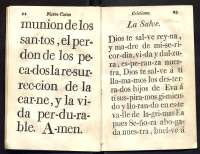 Christiana.
munion de los
san-tos, el per-
don de los pe-
ca-dos la re-sur-
rec-cion de la
car-ne, y la vi-
da per-du-ra-
ble. A-men.
La Salve.
Dios te sal-ve rey-na,
y ma-dre de mi-se-ri-
cor-dia, vi-da y dul-zu-
ra, es-pe-ran-za nues-
tra, Dios te sal-ve á ti
lla-ma-mos los des-ter-
ra-dos hijos de Eva á
ti sus-pira-mos gimien-
do y llo-ran-do en es-te
va-lle de la-gri-mas Ea
pues Se-ño-ra abo-ga-
da nues-tra, buel-ve á